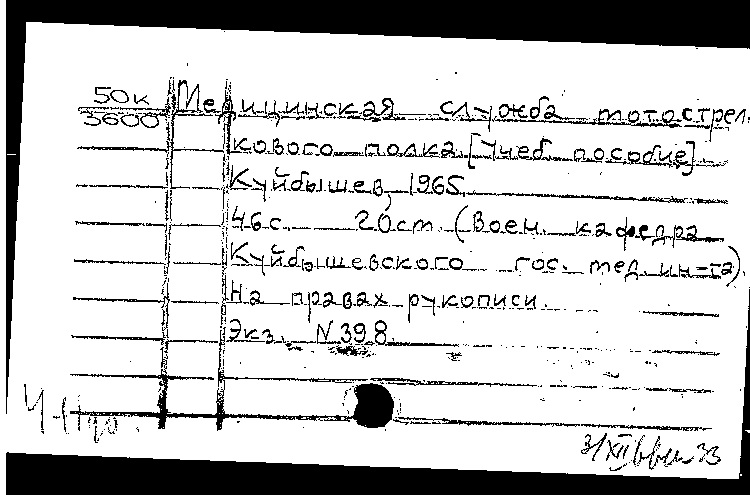 50к
3600
Медицинская служба мотострел.
кового полка. [Учеб. пособие]
Куйбышев, 1965.
46 с. 20 см. (Воен. кафедра
Куйбышевского гос. мед. ин-та).
На правах рукописи.
Экз. N 398.